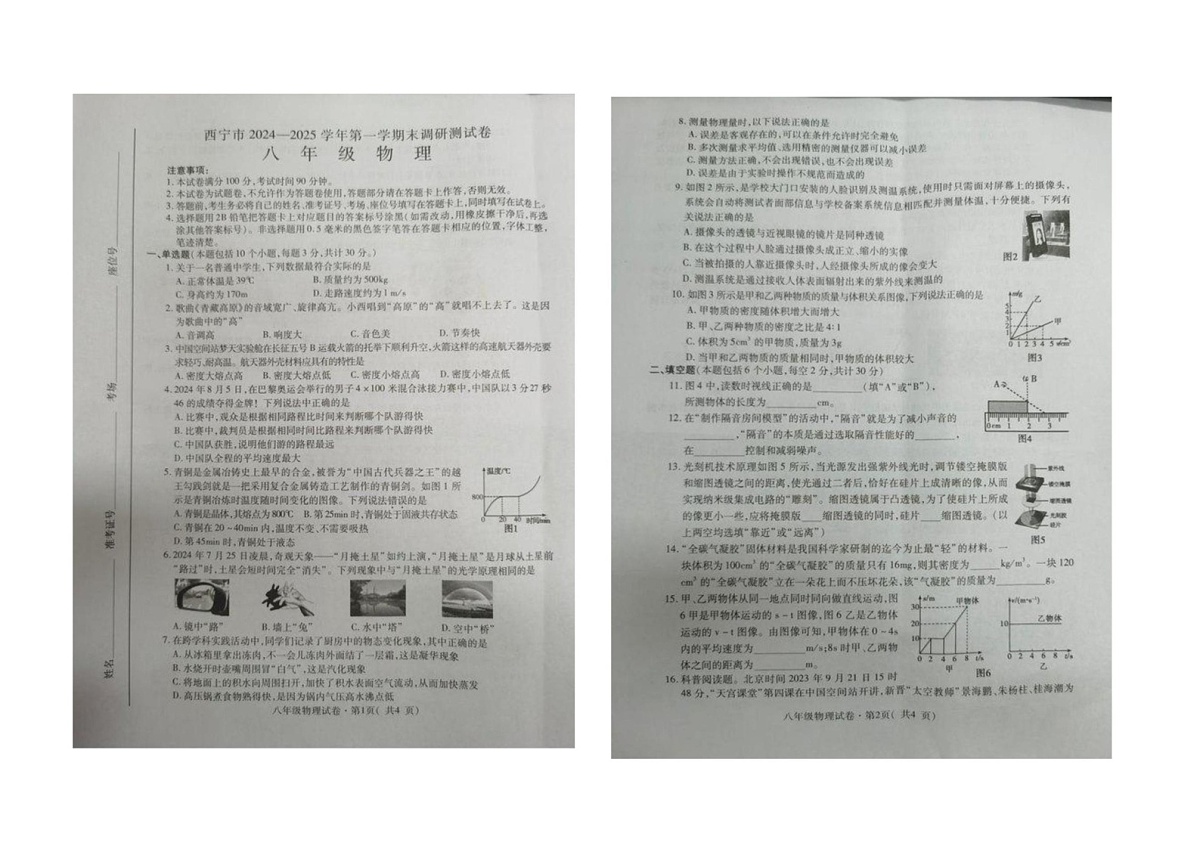 西宁市 2024—2025 学年第一学期末调研测试卷
八 年 级 物 理
注意事项:
1. 本试卷满分 100 分,考试时间 90 分钟。
2. 本试卷为试题卷,不允许作为答题卷使用,答题部分请在答题卡上作答,否则无效。
3. 答题前,考生务必将自己的姓名、准考证号、考场、座位号填写在答题卡上,同时填写在试卷上。
4. 选择题用 2B 铅笔把答题卡上对应题目的答案标号涂黑(如需改动,用橡皮擦干净后,再选
涂其他答案标号)。非选择题用 0.5 毫米的黑色签字笔答在答题卡相应的位置,字体工整,
笔迹清楚。
一、单选题(本题包括 10 个小题,每题 3 分,共计 30 分。)
1. 关于一名普通中学生,下列数据最符合实际的是
A. 正常体温是 39℃ B. 质量约为 500kg
C. 身高约为 170m D. 走路速度约为 1 m/s
2. 歌曲《青藏高原》的音域宽广、旋律高亢。小西唱到“高原”的“高”就唱不上去了。这是因
为歌曲中的“高”
A. 音调高 B. 响度大 C. 音色美 D. 节奏快
3. 中国空间站梦天实验舱在长征五号 B 运载火箭的托举下顺利升空,火箭这样的高速航天器外壳要
求轻巧、耐高温。航天器外壳材料应具有的特性是
A. 密度大熔点高 B. 密度大熔点低 C. 密度小熔点高 D. 密度小熔点低
4. 2024 年 8 月 5 日,在巴黎奥运会举行的男子 4×100 米混合泳接力赛中,中国队以 3 分 27 秒
46 的成绩夺得金牌!下列说法中正确的是
A. 比赛中,观众是根据相同路程比时间来判断哪个队游得快
B. 比赛中,裁判员是根据相同时间比路程来判断哪个队游得快
C. 中国队获胜,说明他们游的路程最远
D. 中国队全程的平均速度最大
5. 青铜是金属冶铸史上最早的合金,被誉为“中国古代兵器之王”的越
王勾践剑就是一把采用复合金属铸造工艺制作的青铜剑。如图 1 所
示是青铜冶炼时温度随时间变化的图像。下列说法错误的是
A. 青铜是晶体,其熔点为 800℃ B. 第 25min 时,青铜处于固液共存状态
C. 青铜在 20~40min 内,温度不变、不需要吸热
D. 第 45min 时,青铜处于液态
温度/℃
800
0 20 40 时间/min
图1
6. 2024 年 7 月 25 日凌晨,奇观天象——“月掩土星”如约上演,“月掩土星”是月球从土星前
“路过”时,土星会短时间完全“消失”。下列现象中与“月掩土星”的光学原理相同的是
A. 镜中“路” B. 墙上“兔” C. 水中“塔” D. 空中“桥”
7. 在跨学科实践活动中,同学们记录了厨房中的物态变化现象,其中正确的是
A. 从冰箱里拿出冻肉,不一会儿冻肉外面结了一层霜,这是凝华现象
B. 水烧开时壶嘴周围冒“白气”,这是汽化现象
C. 将地面上的积水向周围扫开,加快了积水表面空气流动,从而加快蒸发
D. 高压锅煮食物熟得快,是因为锅内气压高水沸点低
八年级物理试卷·第1页( 共4 页)
座位号
考场
准考证号
姓名
8. 测量物理量时,以下说法正确的是
A. 误差是客观存在的,可以在条件允许时完全避免
B. 多次测量求平均值、选用精密的测量仪器可以减小误差
C. 测量方法正确,不会出现错误,也不会出现误差
D. 误差是由于实验时操作不规范而造成的
9. 如图 2 所示,是学校大门口安装的人脸识别及测温系统,使用时只需面对屏幕上的摄像头,
系统会自动将测试者面部信息与学校备案系统信息相匹配并测量体温,十分便捷。下列有
关说法正确的是
A. 摄像头的透镜与近视眼镜的镜片是同种透镜
B. 在这个过程中人脸通过摄像头成正立、缩小的实像
C. 当被拍摄的人靠近摄像头时,人经摄像头所成的像会变大
D. 测温系统是通过接收人体表面辐射出来的紫外线来测温的
图2
10. 如图 3 所示是甲和乙两种物质的质量与体积关系图像,下列说法正确的是
A. 甲物质的密度随体积增大而增大
B. 甲、乙两种物质的密度之比是 4∶1
C. 体积为 5cm³ 的甲物质,质量为 3g
D. 当甲和乙两物质的质量相同时,甲物质的体积较大
m/g
乙
甲
5
4
3
2
1
0 1 2 3 4 5 V/cm³
图3
二、填空题(本题包括 6 个小题,每空 2 分,共计 30 分)
11. 图 4 中,读数时视线正确的是________(填“A”或“B”),
所测物体的长度为________cm。
A B
0cm 1 2 3
图4
12. 在“制作隔音房间模型”的活动中,“隔音”就是为了减小声音的
________,“隔音”的本质是通过选取隔音性能好的________,
在________控制和减弱噪声。
13. 光刻机技术原理如图 5 所示,当光源发出强紫外线光时,调节镂空掩膜版
和缩图透镜之间的距离,使光通过二者后,恰好在硅片上成清晰的像,从而
实现纳米级集成电路的“雕刻”。缩图透镜属于凸透镜,为了使硅片上所成
的像更小一些,应将掩膜版____缩图透镜的同时,硅片____缩图透镜。(以
上两空均选填“靠近”或“远离”)
紫外线
镂空掩膜
缩图透镜
光刻胶
硅片
图5
14. “全碳气凝胶”固体材料是我国科学家研制的迄今为止最“轻”的材料。一
块体积为 100cm³ 的“全碳气凝胶”的质量只有 16mg,则其密度为______kg/m³。一块 120
cm³ 的“全碳气凝胶”立在一朵花上而不压坏花朵,该“气凝胶”的质量为________g。
15. 甲、乙两物体从同一地点同时同向做直线运动,图
6 甲是甲物体运动的 s-t 图像,图 6 乙是乙物体
运动的 v-t 图像。由图像可知,甲物体在 0~4s
内的平均速度为________m/s;8s 时甲、乙两物
体之间的距离为________m。
s/m
甲物体
30
20
10
0 2 4 6 8 t/s
甲
v/(m·s⁻¹)
乙物体
10
0 2 4 6 8 t/s
乙
图6
16. 科普阅读题。北京时间 2023 年 9 月 21 日 15 时
48 分,“天宫课堂”第四课在中国空间站开讲,新晋“太空教师”景海鹏、朱杨柱、桂海潮为
八年级物理试卷·第2页( 共4 页)